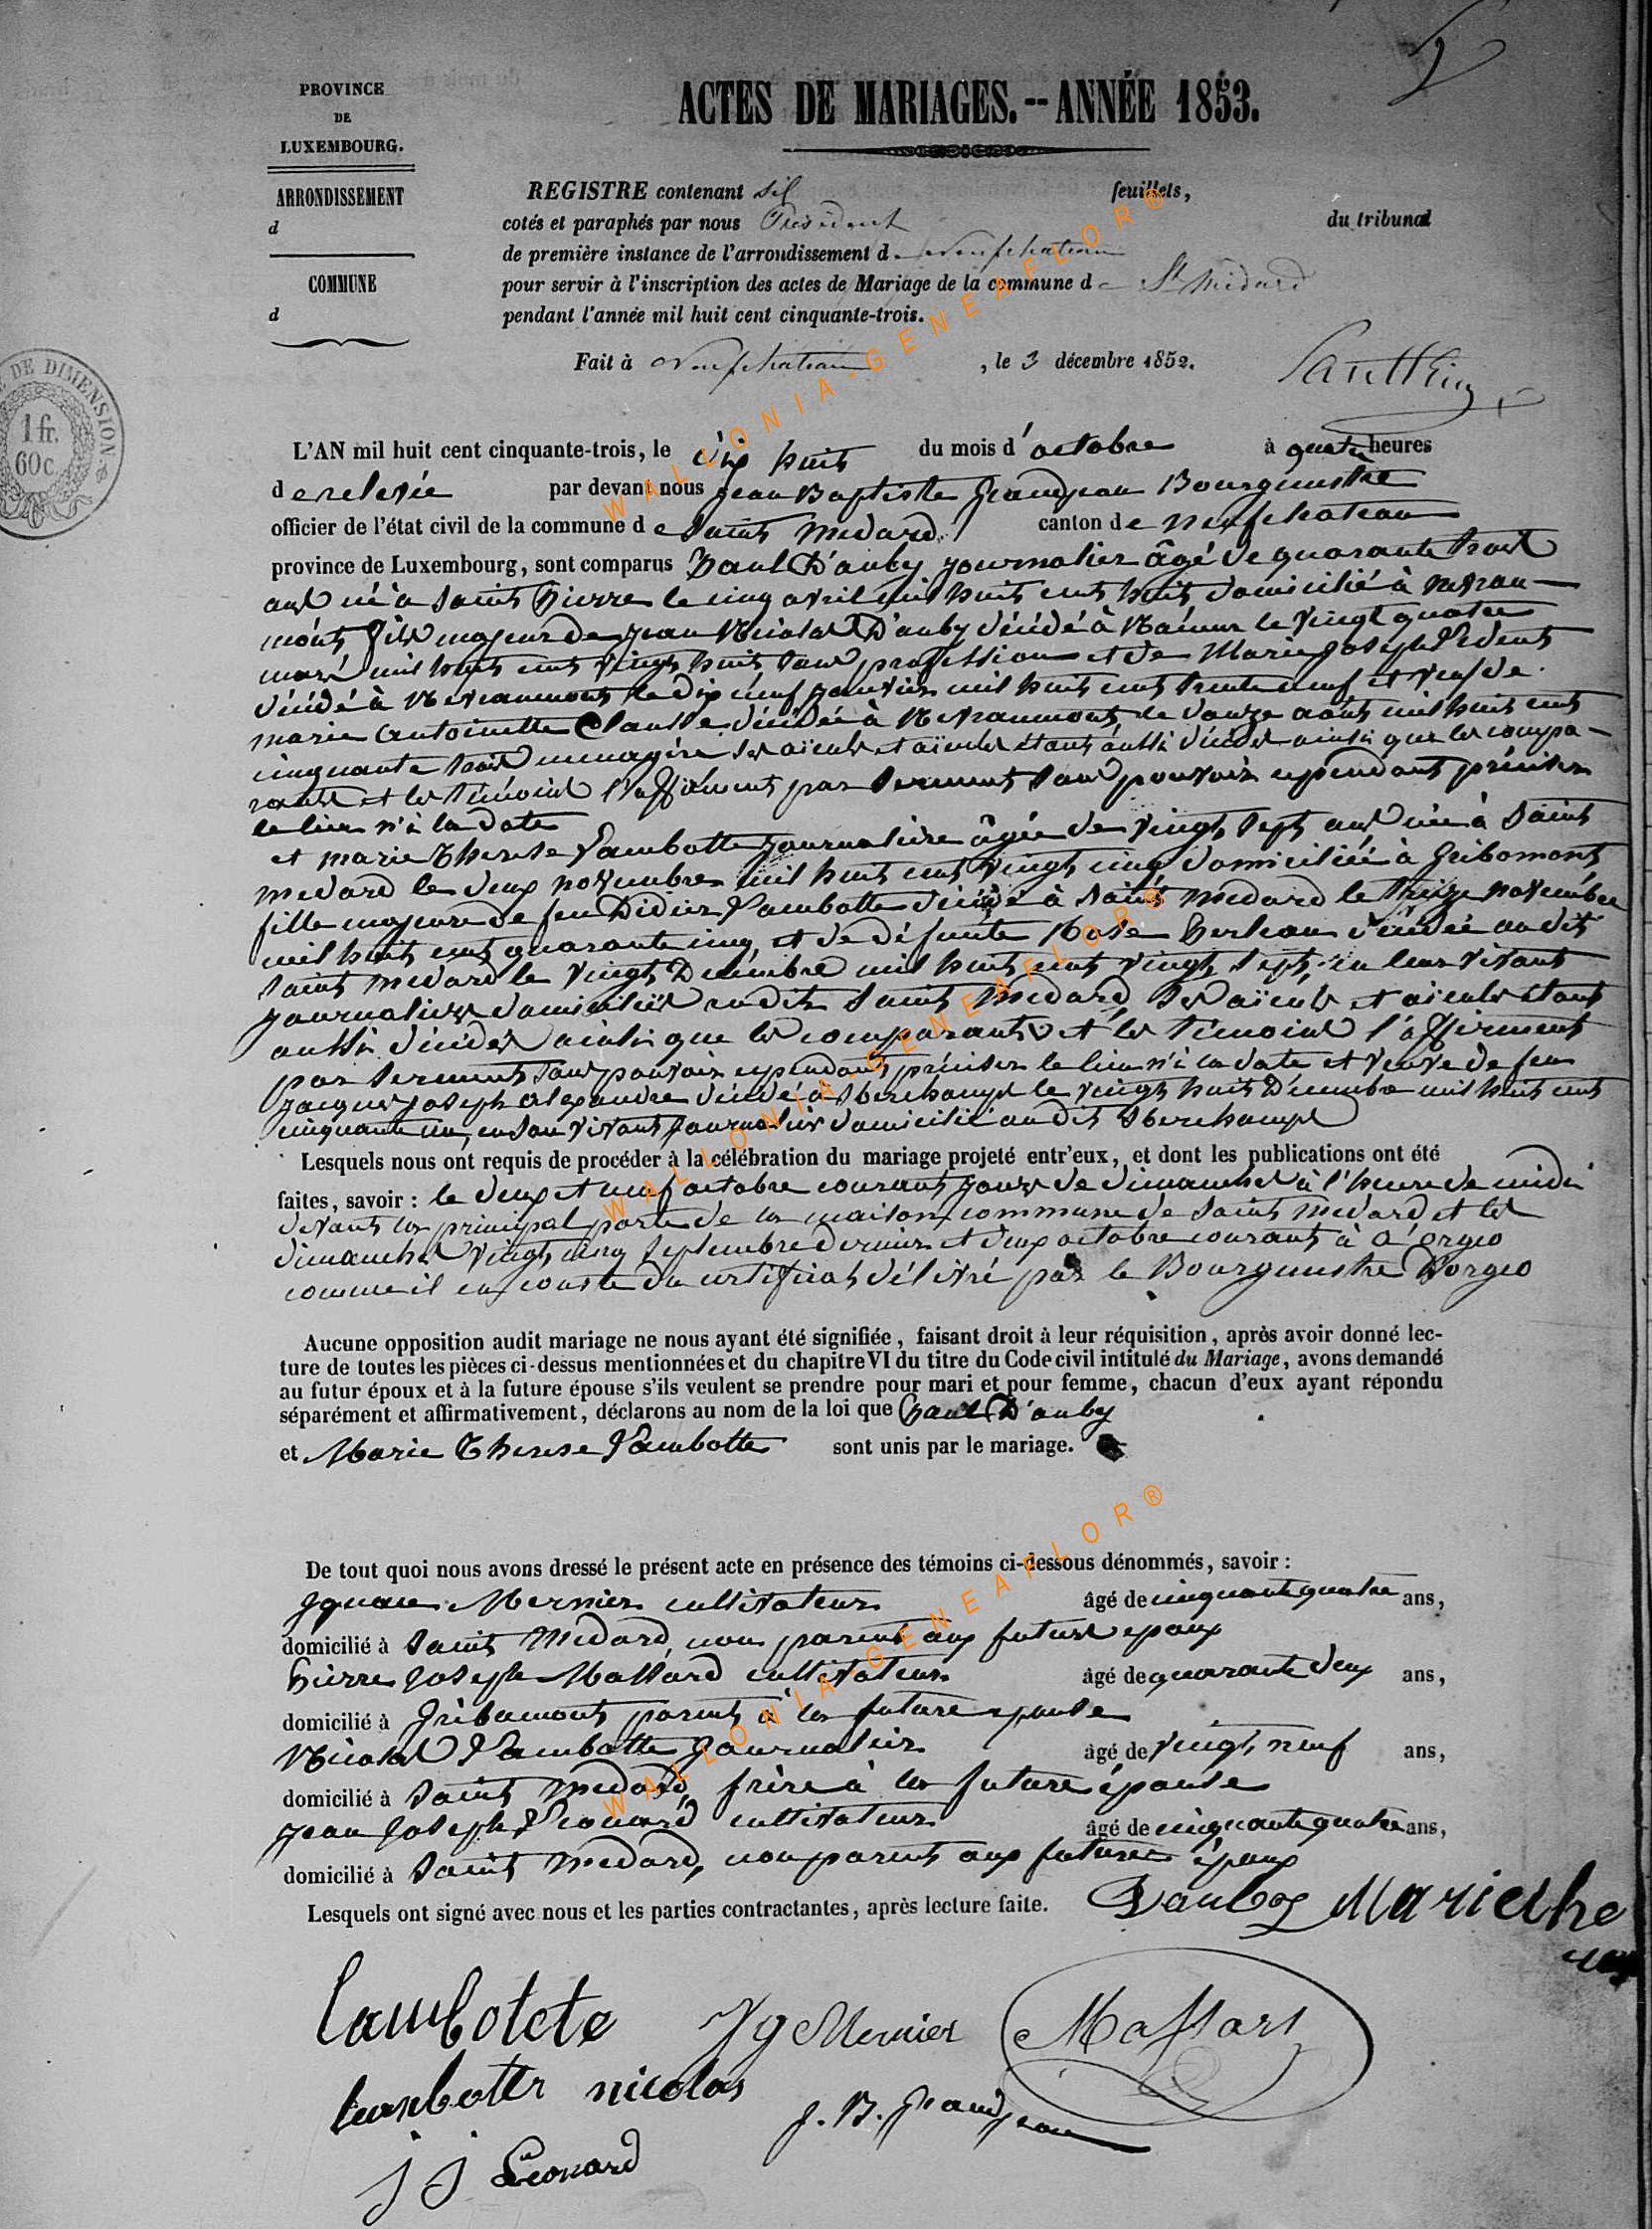 PROVINCE
DE
LUXEMBOURG.
ARRONDISSEMENT
d
COMMUNE
d
ACTES DE MARIAGES.--ANNÉE 1853.
REGISTRE contenant six feuillets,
cotés et paraphés par nous Président du tribunal
de première instance de l'arrondissement de Neufchateau
pour servir à l'inscription des actes de Mariage de la commune de St Médard
pendant l'année mil huit cent cinquante-trois.
Fait à Neufchateau, le 3 décembre 1852.
DE DIMENSION
1 fr.
60c.
L'AN mil huit cent cinquante-trois, le dix huit du mois d'octobre à quatre heures
de relevée par devant nous Jean Baptiste Grandjean Bourgmestre
officier de l'état civil de la commune de Saint Medard canton de neufchateau
province de Luxembourg, sont comparus Paul D'auby journalier âgé de quarante trois
ans né à Saint Pierre le cinq avril mil huit cent huit domicilié à nevrau-
mont fils majeur de Jean Nicolas D'auby décédé à Namur le vingt quatre
mars mil huit cent vingt huit sans profession et de Marie Joseph
décédé à Nevraumont le dix neuf janvier mil huit cent trente neuf et veuf de
marie Antoinette Clausse décédée à Nevraumont le douze août mil huit cent
cinquante trois menagère ses aïeuls et aïeules étant aussi décédés ainsi que les compa-
rants et les témoins l'affirment par serment sans pouvoir cependant préciser
le lieu n'i la date
et marie Therese Lambotte journalière âgée de vingt sept ans née à Saint
medard le deux novembre mil huit cent vingt cinq domiciliée à Gribomont
fille majeure de feu Didier Lambotte décédé à Saint medard le treize novembre
mil huit cent quarante cinq et de défunte Rose Perleau décédée au dit
Saint medard le vingt Decembre mil huit cent vingt sept en leur vivant
journaliers domiciliés au dit Saint Medard, ses aïeuls et aïeules étant
aussi décédés ainsi que les comparants et les témoins l'affirment
par serment sans pouvoir cependant préciser le lieu n'i la date et veuve de feu
Jacques Joseph Alexandre décédé à Sberchamps le vingt huit Decembre mil huit cent
cinquante un, en son vivant journalier domicilié au dit Sberchamps
Lesquels nous ont requis de procéder à la célébration du mariage projeté entr'eux, et dont les publications ont été
faites, savoir : le deux et neuf octobre courant jours de dimanche à l'heure de midi
devant la principal porte de la maison commune de Saint Medard et les
dimanches vingt cinq septembre dernier et deux octobre courant à O'orgeo
comme il en conste du certificat délivré par le Bourgmestre D'orgeo
Aucune opposition audit mariage ne nous ayant été signifiée, faisant droit à leur réquisition, après avoir donné lec-
ture de toutes les pièces ci-dessus mentionnées et du chapitre VI du titre du Code civil intitulé du Mariage, avons demandé
au futur époux et à la future épouse s'ils veulent se prendre pour mari et pour femme, chacun d'eux ayant répondu
séparément et affirmativement, déclarons au nom de la loi que Paul D'auby
et Marie Therese Lambotte sont unis par le mariage.
De tout quoi nous avons dressé le présent acte en présence des témoins ci-dessous dénommés, savoir :
Ignace Mernier cultivateur âgé de cinquante quatre ans,
domicilié à Saint Medard, non parent aux futurs epoux
Pierre Joseph Massard cultivateur âgé de quarante deux ans,
domicilié à Gribaumont parent à la future epouse
Nicolas Lambotte journalier âgé de vingt neuf ans,
domicilié à Saint Medard frère à la future épouse
Jean Joseph Léonard cultivateur âgé de cinquante quatre ans,
domicilié à Saint Medard, non parent aux futures époux
Lesquels ont signé avec nous et les parties contractantes, après lecture faite.
Dauby Marie the
Lambotete Ig Mernier Massart
lambotte nicolas J. B. Grandjean
J J Léonard
WALLONIA-GENEAFLOR®
WALLONIA-GENEAFLOR®
WALLONIA-GENEAFLOR®